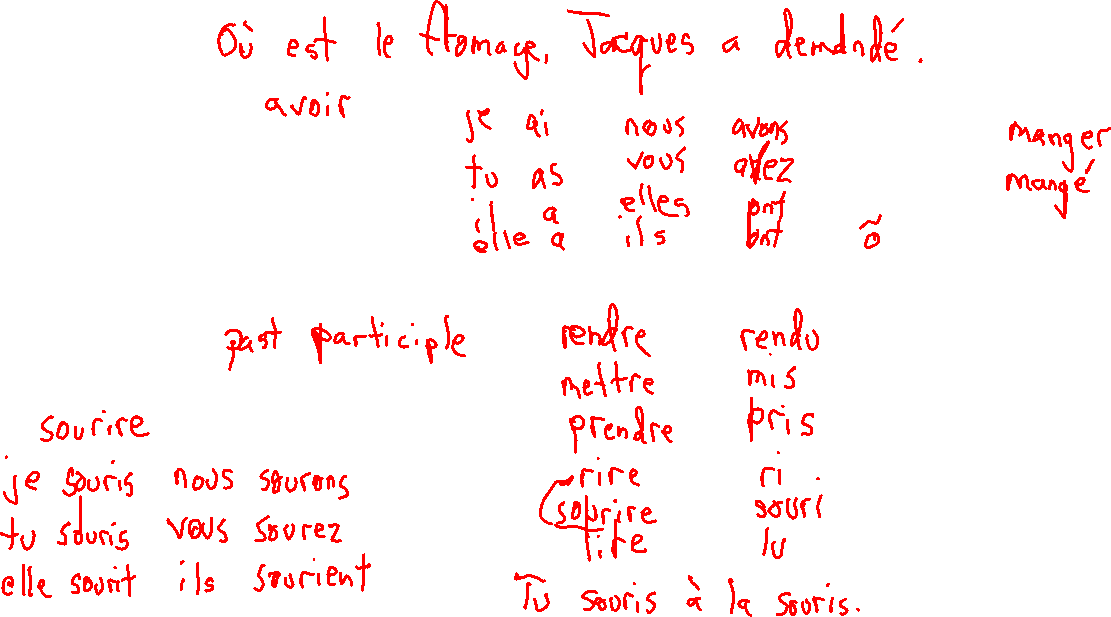 Où est le fromage, Jacques a demandé.
avoir
je ai nous avons
tu as vous avez
il a elles ont
elle a ils ont õ
manger
mangé
past participle
rendre rendu
mettre mis
prendre pris
rire ri
sourire souri
lire lu
sourire
je souris nous sourons
tu souris vous sourez
elle sourit ils sourient
Tu souris à la souris.